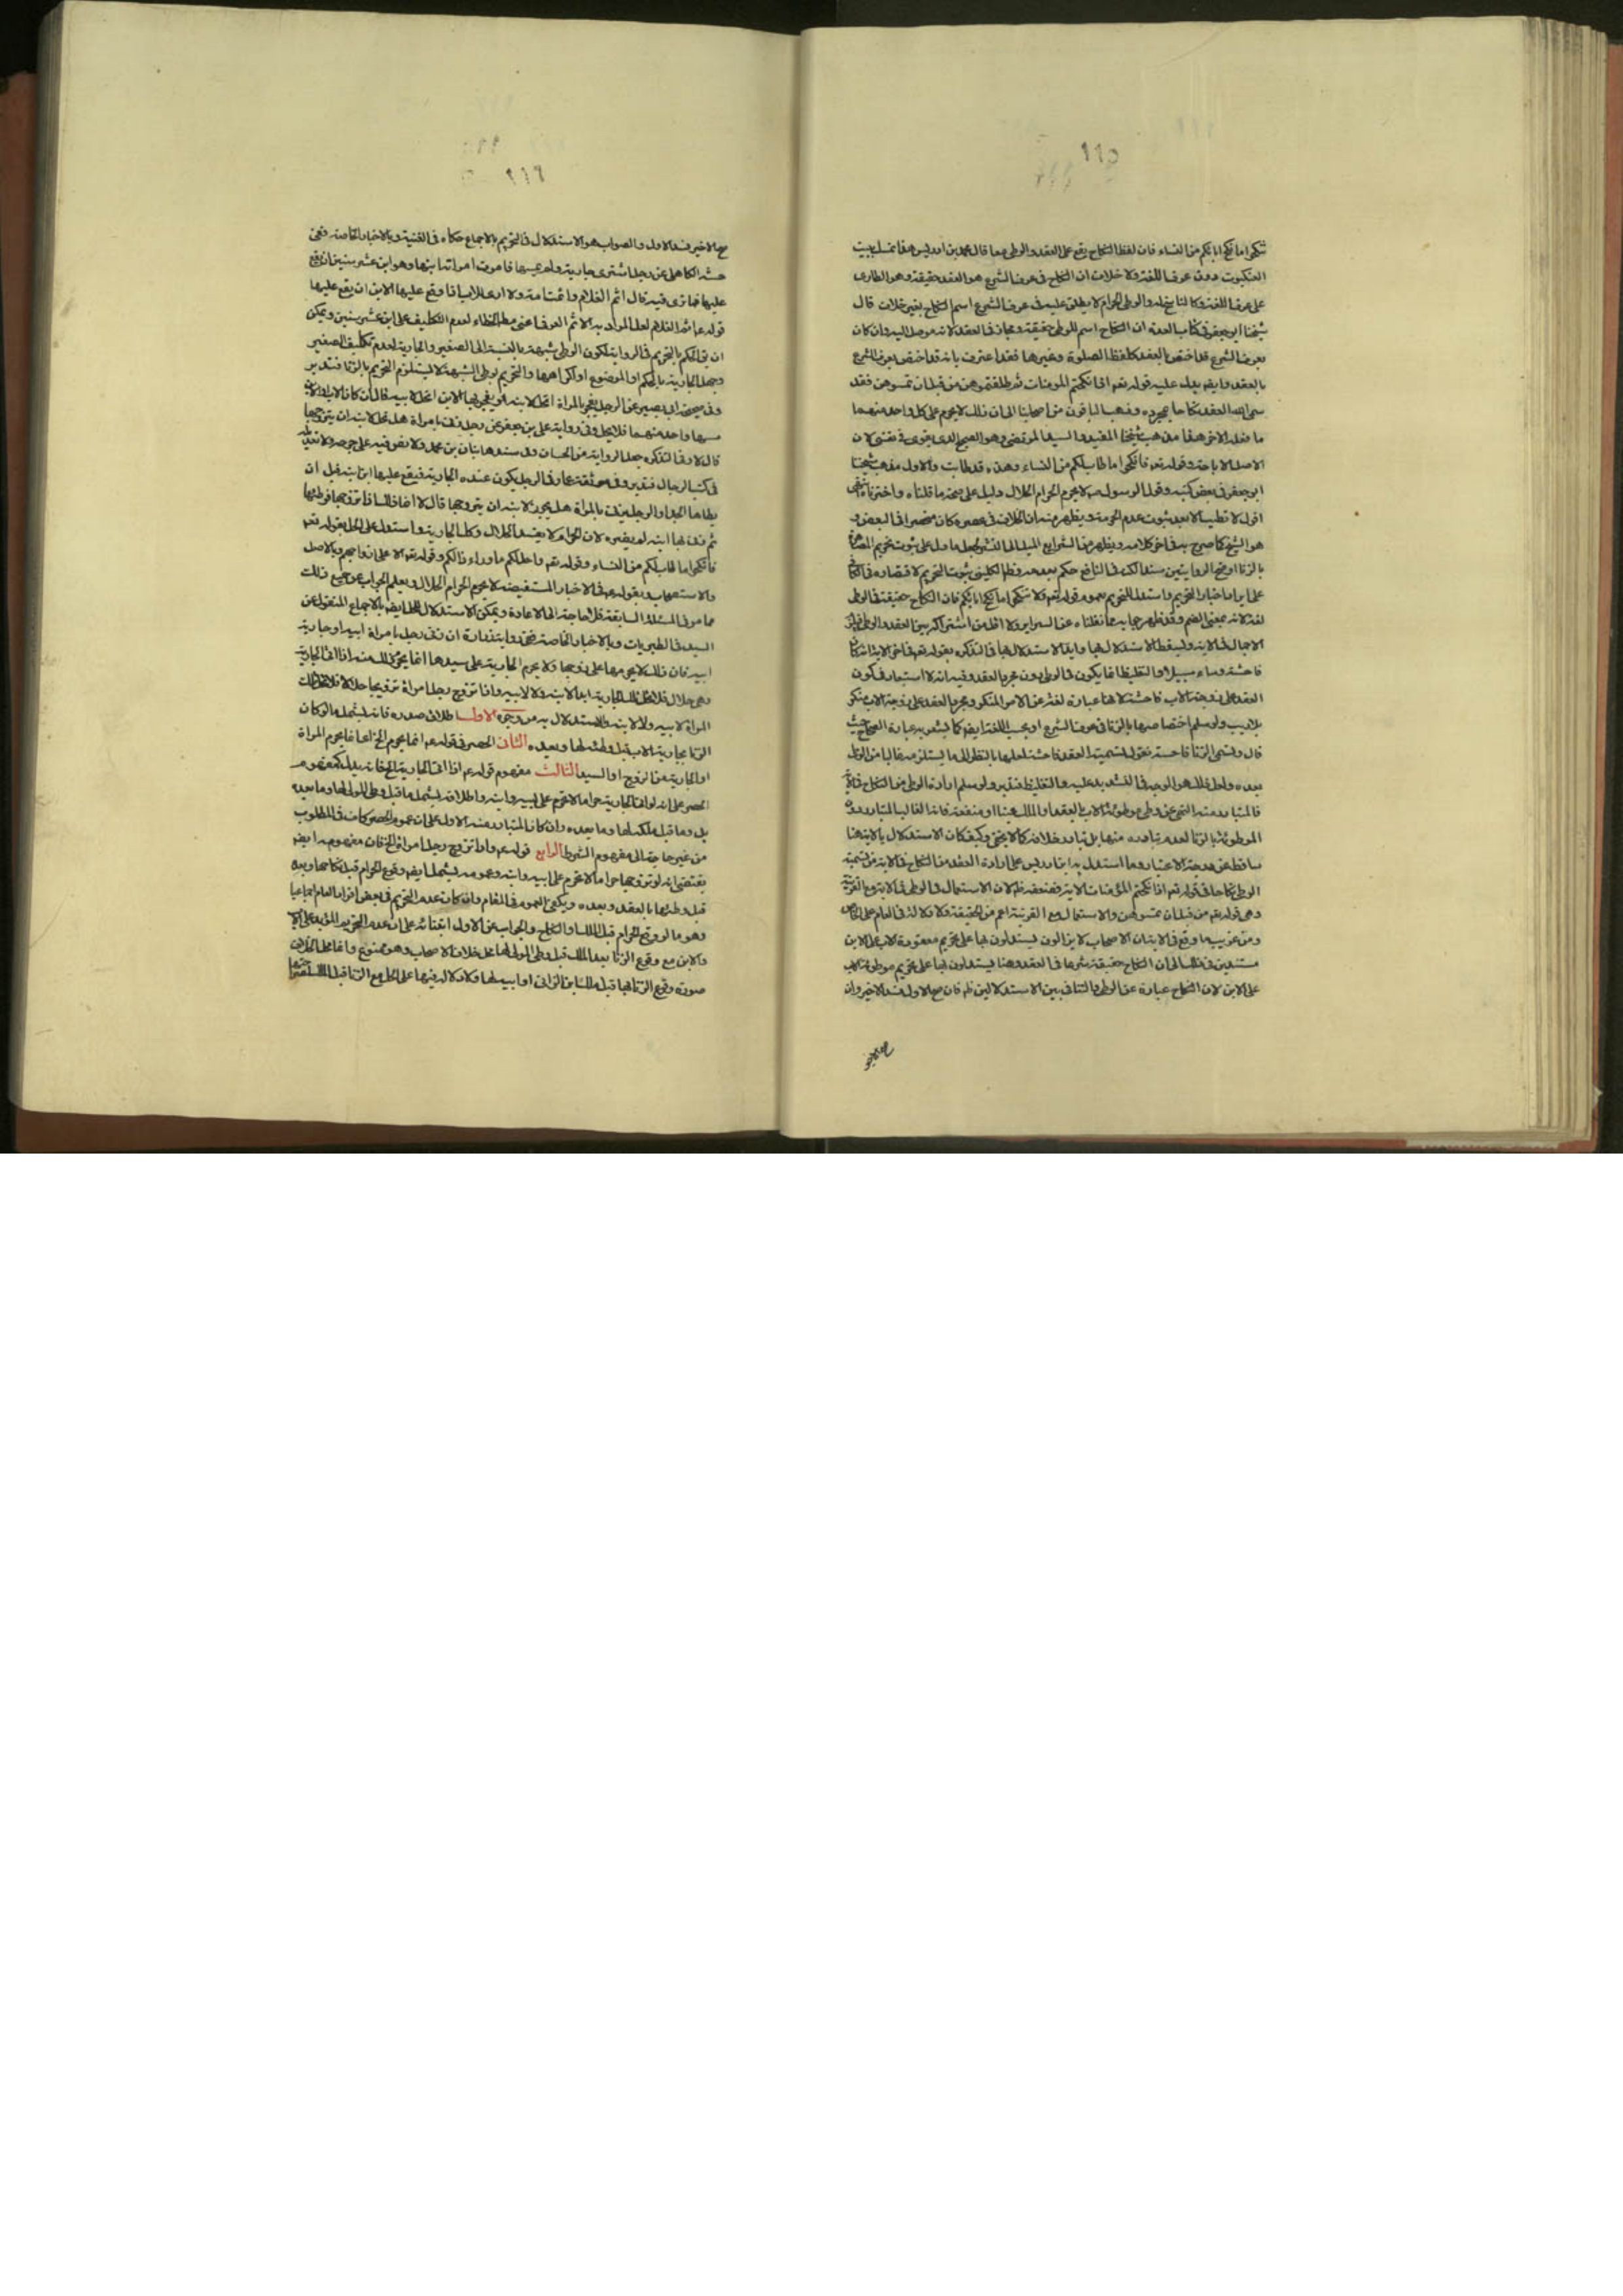 ١١٥
تنكحوا ما نكح اباؤكم من النساء فان لفظ النكاح يقع على العقد والوطى معا قال محمد بن ادريس هذا تمسك ببيت
العنكبوت دون عرف اللغة ولا خلاف ان النكاح فى عرف الشرع هو العقد حقيقة وهو الطارى
على عرف اللغة وكالناسخ له والوطى الحرام لا يطلق عليه فى عرف الشرع اسم النكاح بغير خلاف قال
شيخنا ابو جعفر فى كتاب العدة ان النكاح اسم للوطى حقيقة ومجاز فى العقد لانه موصل اليه وان كان
بعرف الشرع قد اختص بالعقد كلفظ الصلوة وغيرها فقد اعترف بانه قد اختص بعرف الشرع
بالعقد وايضا يدل عليه قوله تعه اذا نكحتم المومنات ثم طلقتموهن من قبل ان تمسوهن فقد
سمى الله العقد نكاحا بمجرده وذهب الباقون من اصحابنا الى ان ذلك لا يحرم على كل واحد منهما
ما فعله الاخر هذا مذهب شيخنا المفيد والسيد المرتضى وهو الصحيح الذى يقوى فى نفسى لان
الاصل الاباحة وقوله تعه فانكحوا ما طاب لكم من النساء وهذه قد طابت والاول مذهب شيخنا
ابو جعفر فى بعض كتبه وقول الرسول ص لا يحرم الحرام الحلال دليل على صحة ما قلناه واخترناه انتهى
اقول لا تطيب الا بعد ثبوت عدم الحرمة ويظهر منه ان الخلاف فى عصره كان منحصرا فى البعض و
هو الشيخ كما صرح به فى اخر كلامه ويظهر من الشرايع الميل الى النشر بعدما دل على ثبوت تحريم المصاهرة
بالزنا اوضح الروايتين سندا لكنه فى النافع حكم بعدمه وظ الكلينى ثبوت التحريم لاقتصاره فى الكافى
على ايراد اخبار التحريم واستدل للتحريم بعموم قوله تعه ولا تنكحوا ما نكح اباؤكم فان النكاح حقيقة فى الوطى
لغة لانه بمعنى الضم وقد ظهر جوابه مما نقلناه عن السراير ولا اقل من اشتراكه بين العقد والوطى فيلزم
الاجمال فى الاية وليسقط الاستدلال بها وايد الاستدلال بها فى التذكره بقوله تعه فى اخر الاية انه كان
فاحشة وساء سبيلا والتغليظ انما يكون فى الوطى دون مجرد العقد وفيه انه لا استبعاد فى كون
العقد على زوجة الاب فاحشة لانها عبارة لغة عن الامر المنكر ومجرد العقد على زوجة الاب منكر
بلا ريب ولو سلم اختصاصها بالزنا فى عرف الشرع او بحسب اللغة ايضا كما يشعر به عبارة الصحاح حيث
قال وتسمى الزنا فاحشة نقول تسمية العقد فاحشة لعلها بالنظر الى ما يستلزمه غالبا من الوطى
بعده ولعل ذلك هو الوجه فى التشديد عليه والتغليظ فتدبر ولو سلم ارادة الوطى من النكاح فى الاية
فالمتبادر منه النهى عن وطى موطوئة الاب بالعقد او الملك عينا او منفعة فانه الغالب المتبادر دون
الموطوئة بالزنا لعدم تبادره منها بل تبادر خلافه كما لا يخفى وكيف كان الاستدلال بالاية هنا
ساقط عن درجة الاعتبار وما استدل به ابن ادريس على ارادة العقد من النكاح فى الاية من تسمية
الوطى نكاحا فى قوله تعه اذا نكحتم المؤمنات الاية فضعفه ظ لان الاستعمال فى الوطى فى الاية مع القرينة
وهى قوله تعه من قبل ان تمسوهن والاستعمال مع القرينة اعم من الحقيقة ولا دلالة فى العام على الخاص
ومن غريب ما وقع فى الاية ان الاصحاب لا يزالون يستدلون بها على تحريم معقودة الاب على الابن
مستندين فى ذلك الى ان النكاح حقيقة شرعا فى العقد وهنا يستدلون بها على تحريم موطوئة الاب
على الابن لان النكاح عبارة عن الوطى والتنافى بين الاستدلالين ظ فان صح الاول فسد الاخير وان
صح الاخير
١١٦
صح الاخير فسد الاول والصواب هو الاستدلال فى التحريم بالاجماع حكاه فى الغنية وبالاخبار الخاصة ففى
عليها فما ترى فيه قال اثم الغلام واثمت امه ولا ارى للاب اذا وقع عليها الابن ان يقع عليها
قوله ع اثم الغلام لعل المراد به الاثم العرفى اعنى مط الخطاء لعدم التكليف على ابن عشر سنين ويمكن
ان يق الحكم بالتحريم فى الرواية لكون الوطى شبهة بالنسبة الى الصغير والجارية لعدم تكليف الصغير
وجهل الجارية بالحكم او الموضوع او اكراهها والتحريم بوطى الشبهة لا يستلزم التحريم بالزنا فتدبر
وفى صحيحة ابى بصير عن الرجل يفجر بالمراة اتحل لابنه او يفجر بها الابن اتحل لابيه قال ان كان الاب او الابن
مسها واحد منهما فلا تحل وفى رواية على بن جعفر عن رجل زنى بامراة هل تحل لابنه ان يتزوجها
قال لا وفى التذكره جعل الرواية من الحسان وفى سندها بنان بن محمد ولا نص فيه على جرحه ولا تعديله
فى كتب الرجال فتدبر وفى موثقة عمار فى الرجل يكون عنده الجارية فيقع عليها ابن ابنه قبل ان
يطاها الجد او الرجل يزنى بالمراة هل يجوز لابنه ان يتزوجها قال لا انما ذلك اذا تزوجها فوطئها
ثم زنى بها ابنه لم يضره لان الحرام لا يفسد الحلال وكذلك الجارية واستدل على الحل بقوله تعه
فانكحوا ما طاب لكم من النساء وقوله تعه واحل لكم ما وراء ذلكم وقوله تعه الا على ازواجهم وبالاصل
والاستصحاب وبقوله ع فى الاخبار المستفيضه لا يحرم الحرام الحلال ويعلم الجواب عن جميع ذلك
مما مر فى المسئلة السابقة فلا حاجة الى الاعادة ويمكن الاستدلال للحل ايضا بالاجماع المنقول عن
السيد فى الطبريات وبالاخبار الخاصة ففى رواية زرارة ان زنى رجل بامراة ابيه او جارية
ابيه فان ذلك لا يحرمها على زوجها ولا يحرم الجارية على سيدها انما يحرم ذلك منه اذا اتى الجارية
وهى حلال فلا تحل تلك الجارية ابدا لابنه ولا لابيه واذا تزوج رجل امراة تزويجا حلالا فلا تحل تلك
المراة لابيه ولا لابنه والاستدلال به من وجوه الاول اطلاق صدره فانه يشمل ما لو كان
الزنا بجارية الاب قبل وطئه لها وبعده الثانى الحصر فى قوله ع انما يحرم الخ انما يحرم المراة
او الجارية من الزوج او السيد الثالث مفهوم قوله ع اذا اتى الجارية الخ فانه يدل كمفهوم
الحصر على انه لو اتى الجارية حراما لا تحرم على ابيه وابنه واطلاقه يشمل ما قبل وطى المولى لها وما بعده
بل وما قبل ملكه لها وما بعده وان كان المتبادر منه الاول على ان عموم الحصر كاف فى المطلوب
من غير حاجة الى مفهوم الشرط الرابع قوله ع واذا تزوج رجل امراة الخ فان مفهومه ايضا
يقتضى انه لو تزوجها حراما لا تحرم على ابيه وابنه وعمومه يشمل ايضا وقوع الحرام قبل نكاحها وبعده
قبل وطئها بالعقد وبعده ويكفى العموم فى المقام وان كان عدم التحريم فى بعض افراد العام اجماعيا
وهو ما لو وقع الحرام قبل الملك او النكاح والجواب عن الاول
والابن مع وقوع الزنا بعد الملك قبل وطى المولى لها محل خلاف الاصحاب وهو ممنوع وانما محل الخلاف